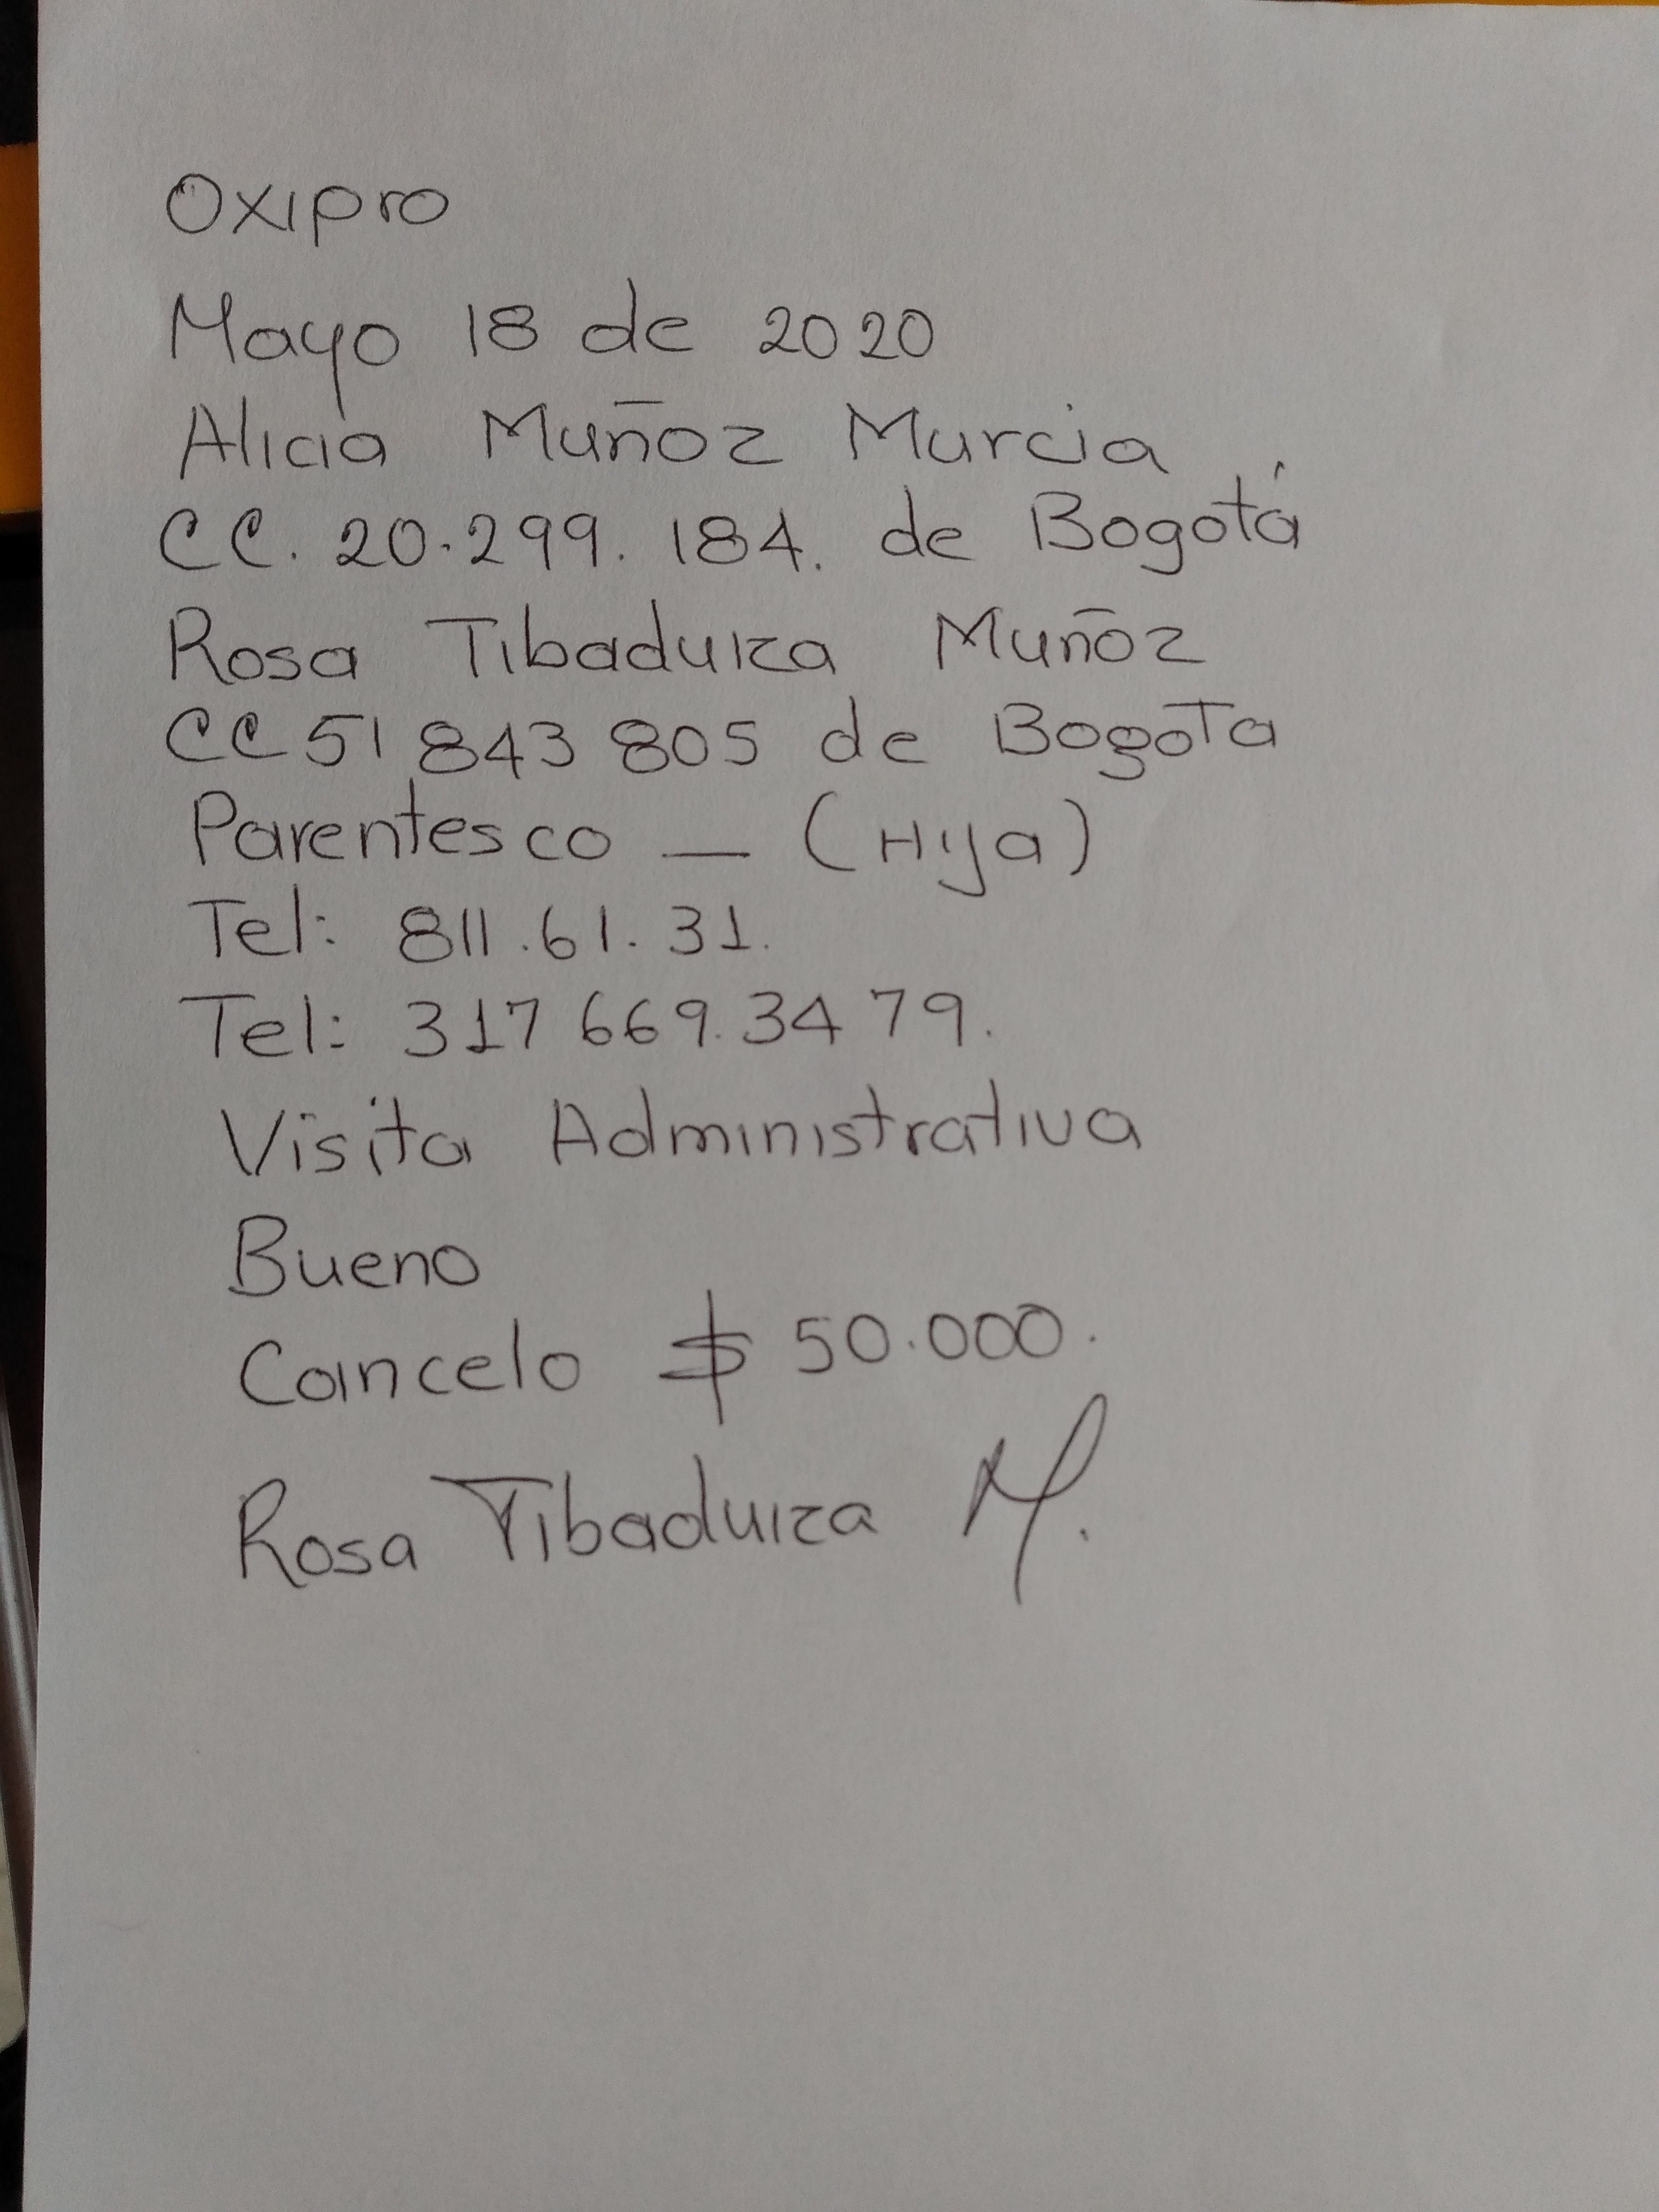 Oxipro
Mayo 18 de 2020
Alicia Muñoz Murcia
CC. 20.299.184. de Bogotá
Rosa Tibaduiza Muñoz
CC 51 843 805 de Bogota
Parentesco — (Hija)
Tel: 811.61.31.
Tel: 317 669.34 79.
Visita Administrativa
Bueno
Cancelo $ 50.000.
Rosa Tibaduiza M.